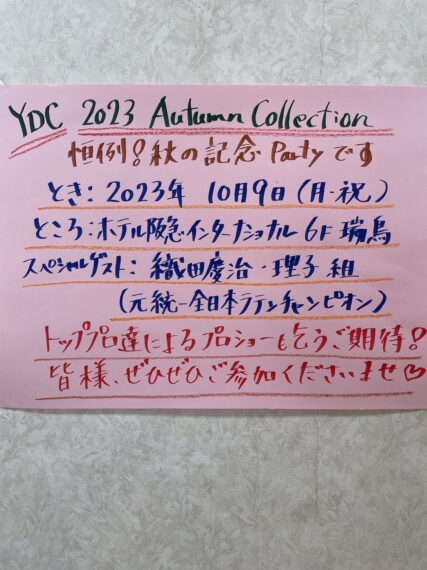 YDC 2023 Autumn Collection
恒例!秋の記念 Party です
とき: 2023年 10月9日(月・祝)
ところ:ホテル阪急インターナショナル 6F 瑞鳥
スペシャルゲスト: 織田慶治・理子 組
(元統一全日本ラテンチャンピオン)
トッププロ達によるプロショーも乞うご期待!
皆様、ぜひぜひご参加くださいませ♡